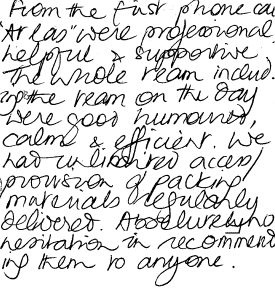 From the first phone ca
"Atlas" were professional
helpful & supportive
The whole team includ
ing the team on the day
were good humoured,
calm & efficient. We
had unlimited access/
provision of packing
materials regularly
delivered. Absolutely no
hesitation in recommend
ing them to anyone.